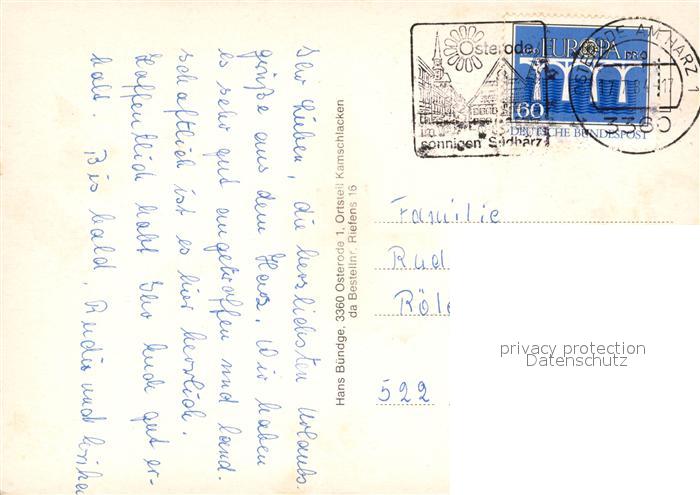 Ihr Lieben, die herzlichsten Urlaubs-
grüße aus dem Harz. Wir haben
es sehr gut angetroffen und land-
schaftlich ist es hier herrlich.
Hoffentlich habt Ihr Euch gut er-
holt. Bis bald,
Hans Bündge, 3360 Osterode 1, Ortsteil Kamschlacken
da Bestellnr. Riefens 16
Osterode
im
sonnigen Südharz
EUROPA
60
DEUTSCHE BUNDESPOST
OSTERODE AM HARZ 1
3360
Familie
Rud
522
privacy protection
Datenschutz